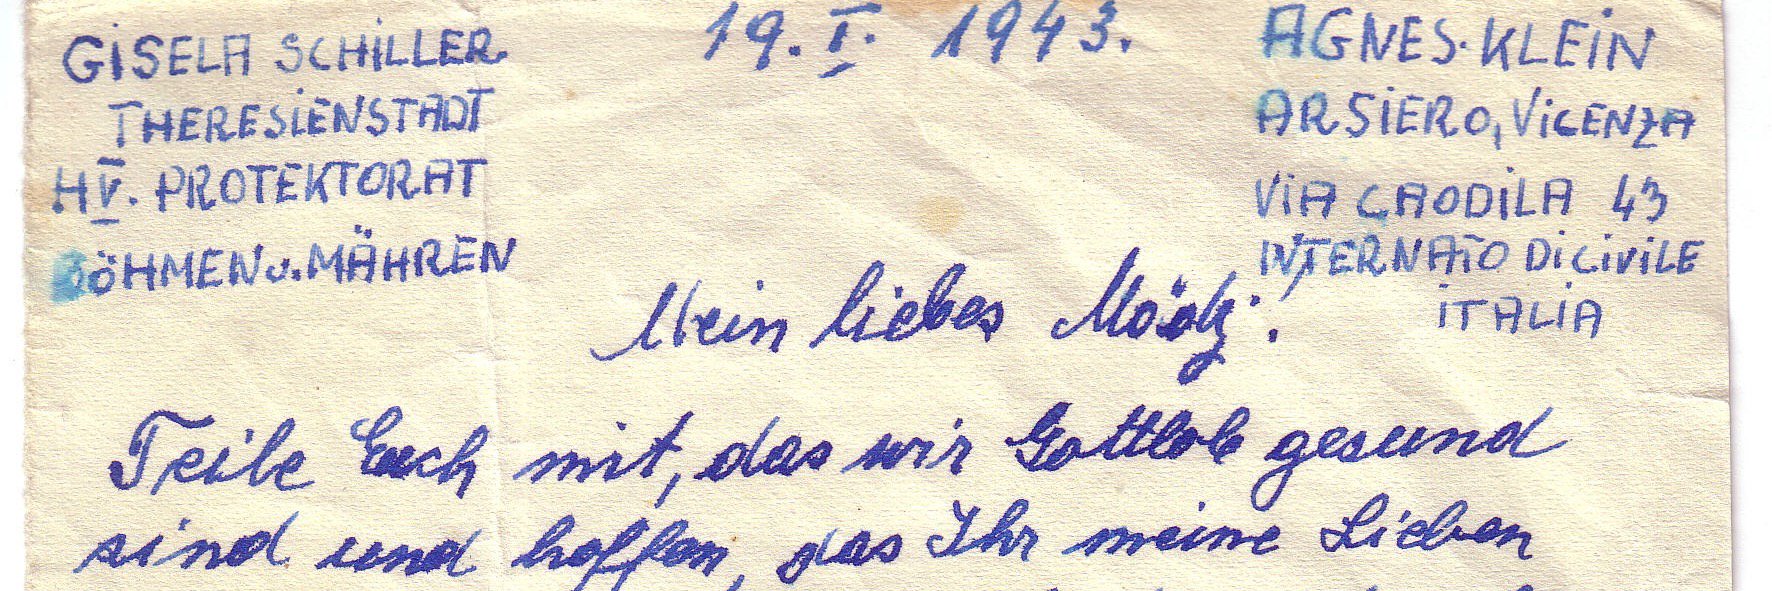 GISELA SCHILLER
THERESIENSTADT
HV. PROTEKTORAT
BÖHMEN u. MÄHREN
19. I. 1943.
AGNES KLEIN
ARSIERO, VICENZA
VIA CAODILA 43
INTERNATO DI CIVILE
ITALIA
Mein liebes !
Teile Euch mit, das wir Gottlob gesund
sind und hoffen, das Ihr meine Lieben